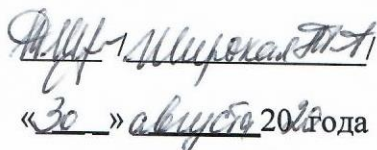 Широкая Т.А.
«30» августа 2020 года